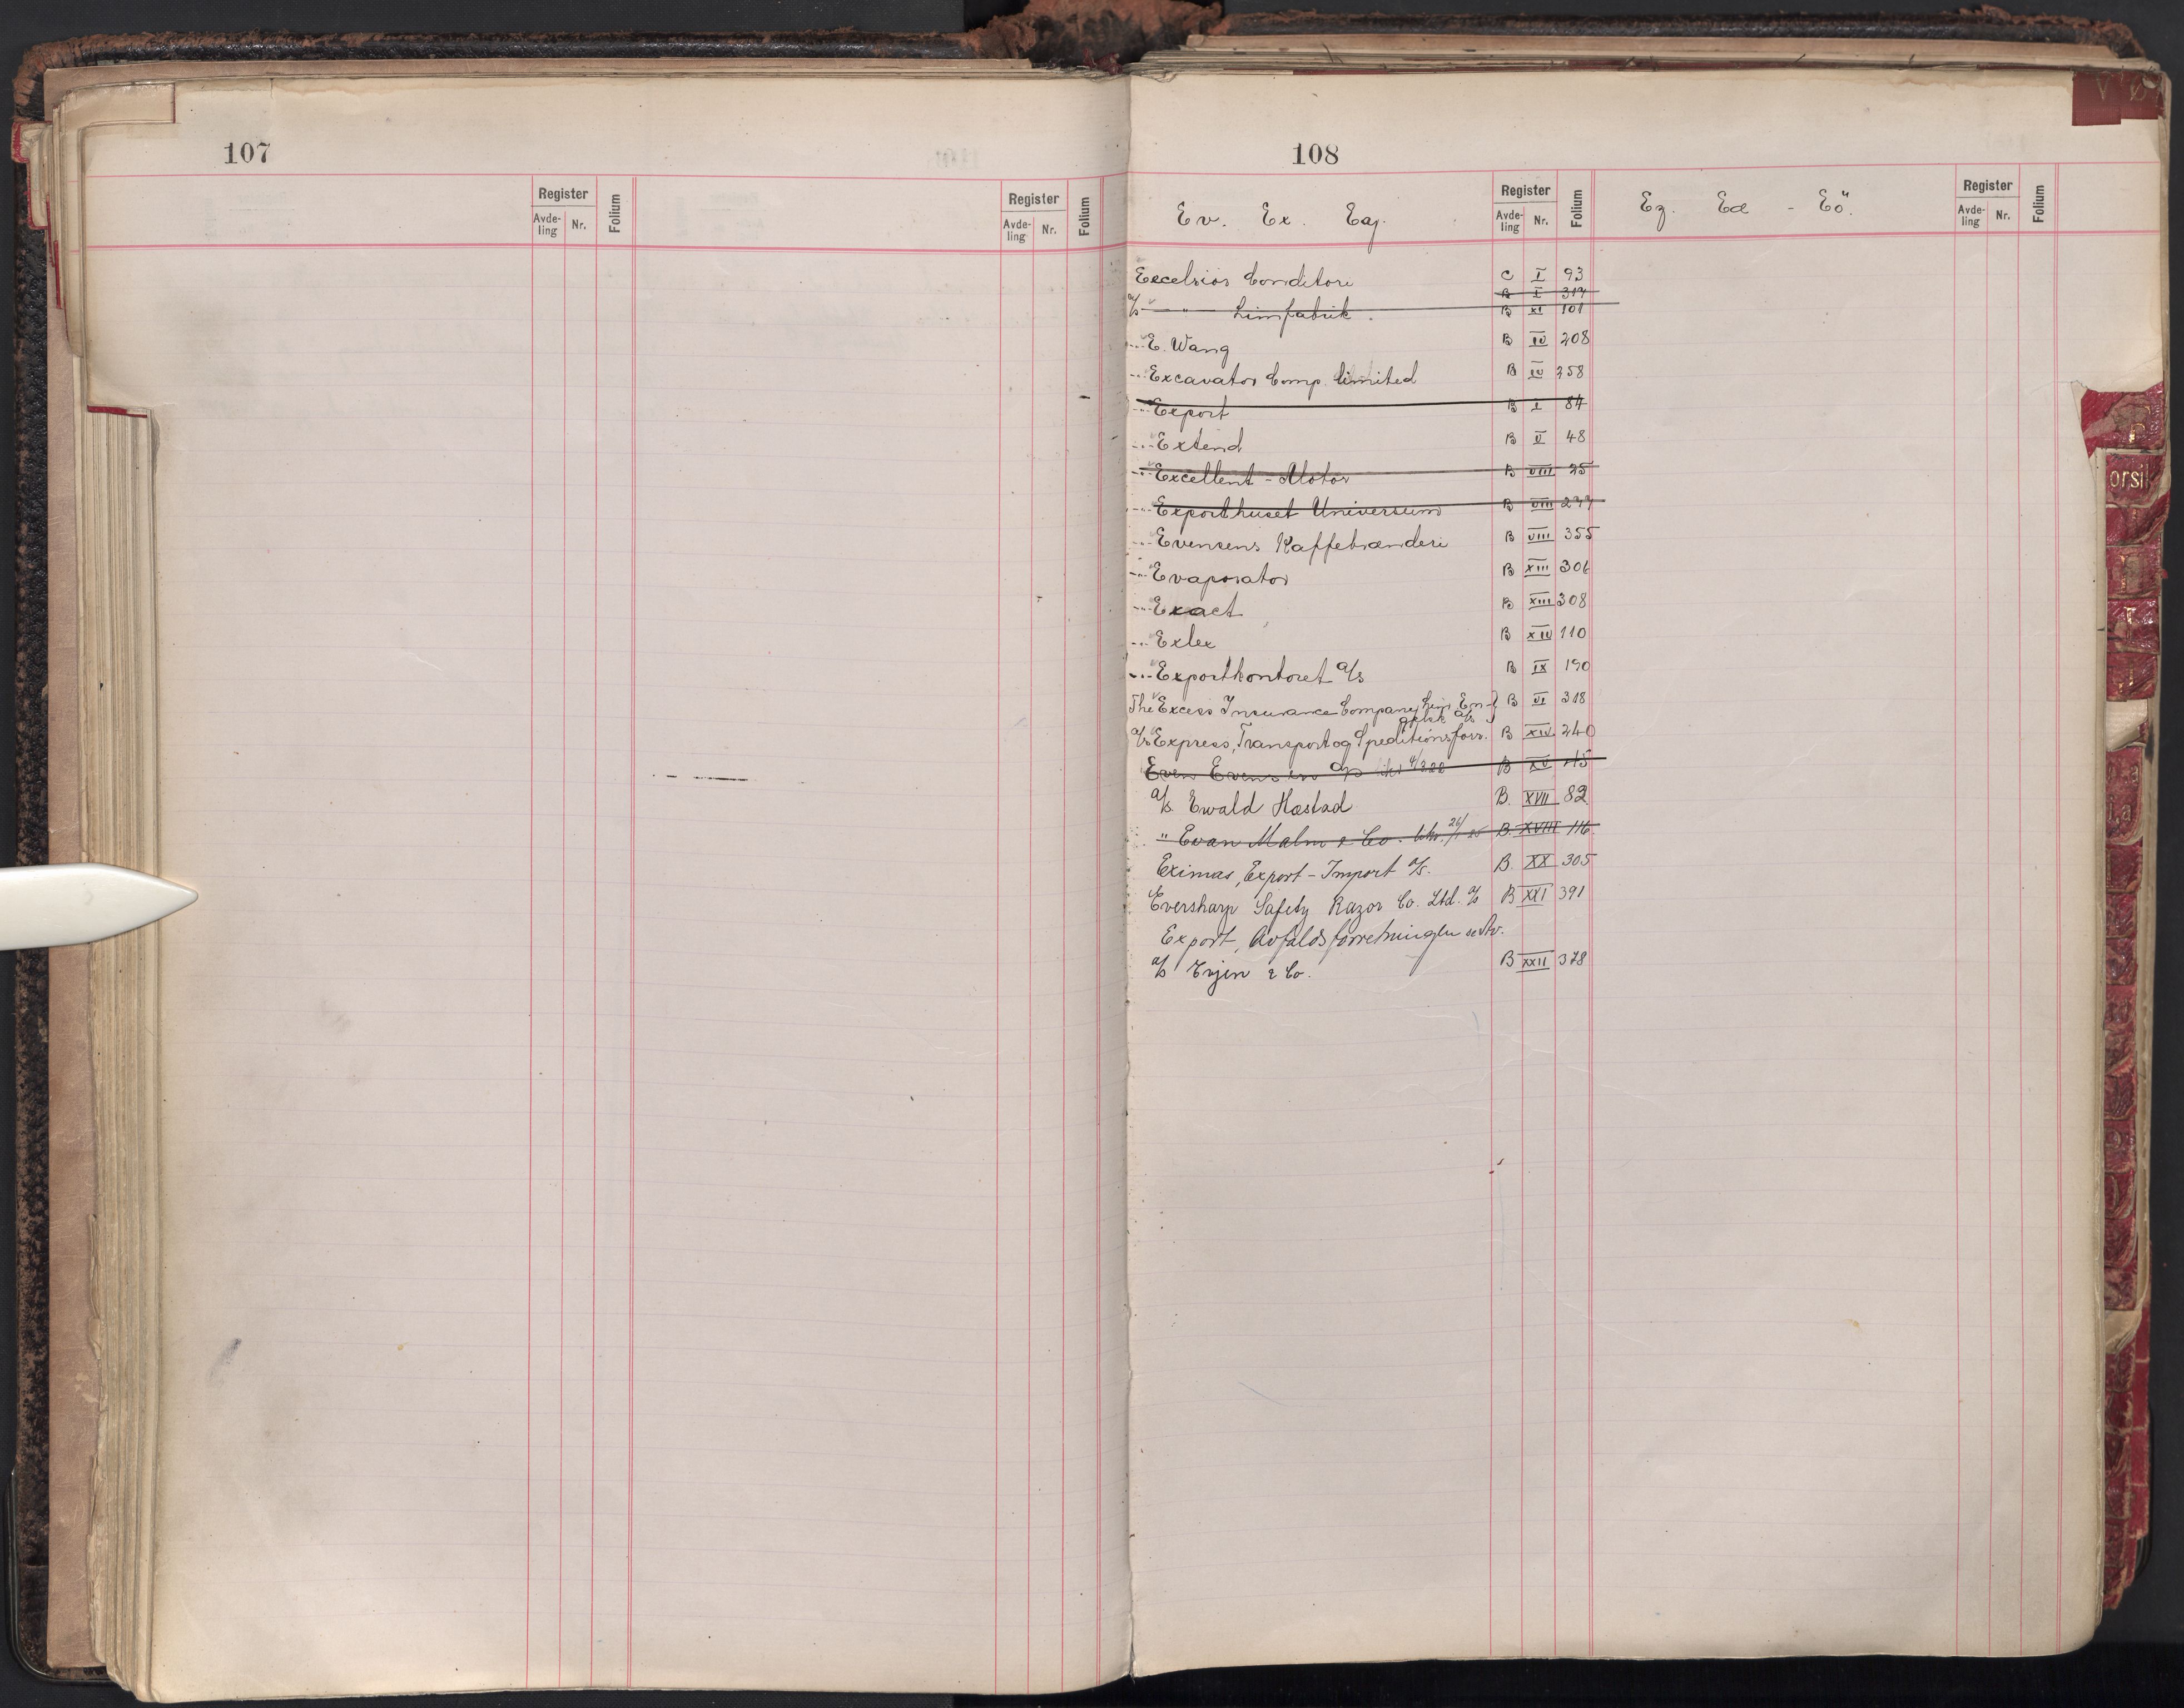 107
Register
Avde-
ling
Nr.
Folium
Register
Avde-
ling
Nr.
Folium
108
Ev. Ex. Eaj.
Register
Avde-
ling
Nr.
Folium
Ez. Eæ - Eö.
Register
Avde-
ling
Nr.
Folium
Excelsior Conditori C I 93
B I 314
a/s " Limfabrik. B XI 101
-"- E. Wang B IV 208
-"- Excavator Comp. Limited B IV 358
-"- Export B I 84
-"- Extend B V 48
-"- Excellent-Motor B VIII 25
-"- Exporthuset Universum B VIII 277
-"- Evensens Kaffebrænderi B VIII 355
-"- Evaporator B XIII 306
-"- Exact B XIII 308
-"- Exlex B XIV 110
-"- Exportkontoret a/s B IX 190
The Excess Insurance Company Lim. En- B VI 318
gelsk a/s
a/s Express, Transport og Speditionsforr. B XIV 240
Even Evensen a/s B XV 115
a/s. Ewald Hæstad B. XVII 82
" Evan Malm & Co. B. XVIII 116.
Eximas, Export-Import a/s. B. XX 305
Eversharp Safety Razor Co. Ltd. a/s B XXI 391
Export, Avfaldsforretningen
a/s Evjen & Co. B XXII 378
orsi